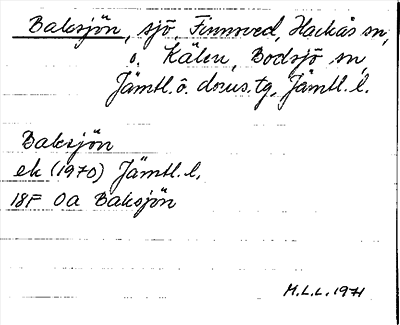 Baksjön, sjö, Finnsved, Hackås sn,
o. Kälen, Bodsjö sn,
Jämtl. ö. doms. tg, Jämtl. l.
Baksjön
ek (1970) Jämtl. l.
18F 0a Baksjön
M.L.L. 1971